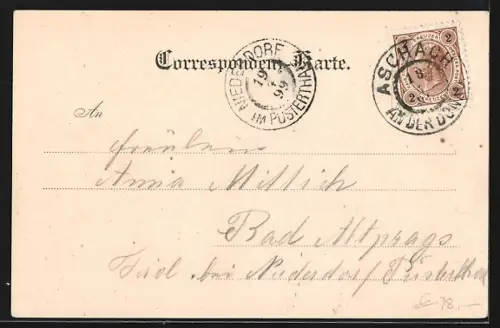 Correspondenz-Karte.
NIEDERDORF
19
99
IM PUSTERTHALE
2 KREUZER 2
2 2
ASCHACH
AN DER DONAU
An
Fräulein
Anna Mittich
Bad Altprags
Tirol bei Niederdorf Pusterthal
78.-